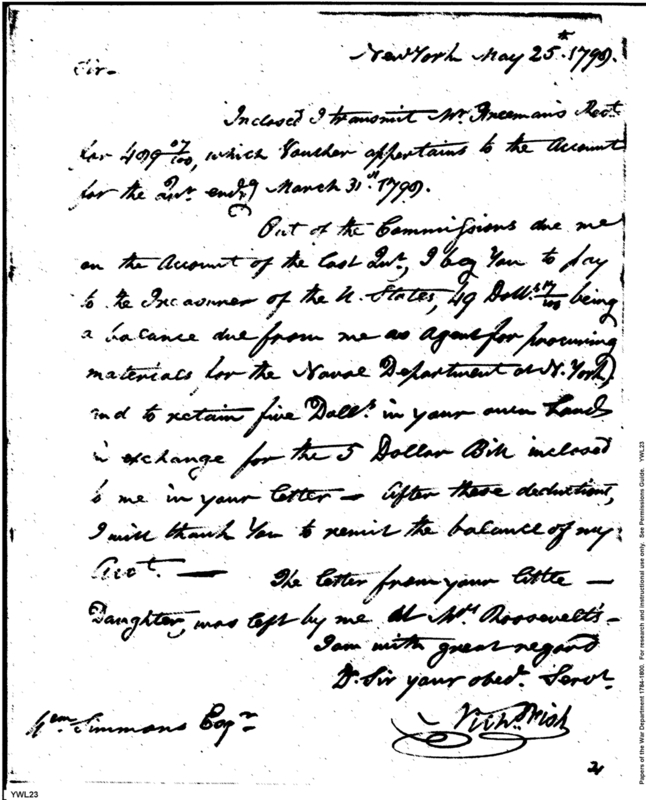 New York May 25th. 1798.
Sir—
Inclosed I transmit Mr. Freeman's Rect.
for 409 07/100, which Voucher appertains to the Account
for the Qur. endg. March 31st. 1798.
Out of the Commissions due me
on the Account of the last Qur., I beg You to pay
to the Treasurer of the U. States, 49 Dolls. 17/100 being
a balance due from me as Agent for procuring
materials for the Naval Department at N. York,
and to retain five Dolls. in your own hands
in exchange for the 5 Dollar Bill inclosed
to me in your letter — After these deductions,
I will thank You to remit the balance of my
Acct. — The letter from your little —
Daughter, was left by me at Mrs. Roosevelt's —
I am with great regard
D. Sir your obed. Servt.
Wm. Simmons Esqr.
Nichs. Fish
2
YWL23
Papers of the War Department 1784-1800. For research and instructional use only. See Permissions Guide. YWL23